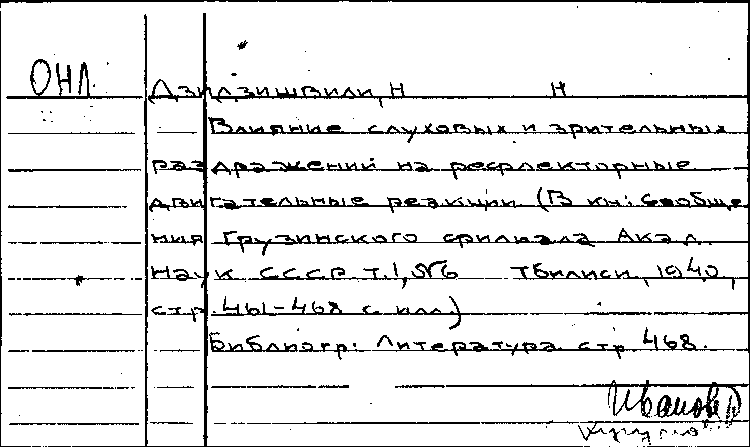 ОНЛ.
Дзидзишвили, Н Н
Влияние слуховых и зрительных
раздражений на рефлекторные
двигательные реакции (В кн: Сообще
ния Грузинского филиала Акад.
Наук СССР Т.1, №6 Тбилиси, 1940,
стр. 461-468 с илл)
Библиогр: Литература стр 468.
Иванов